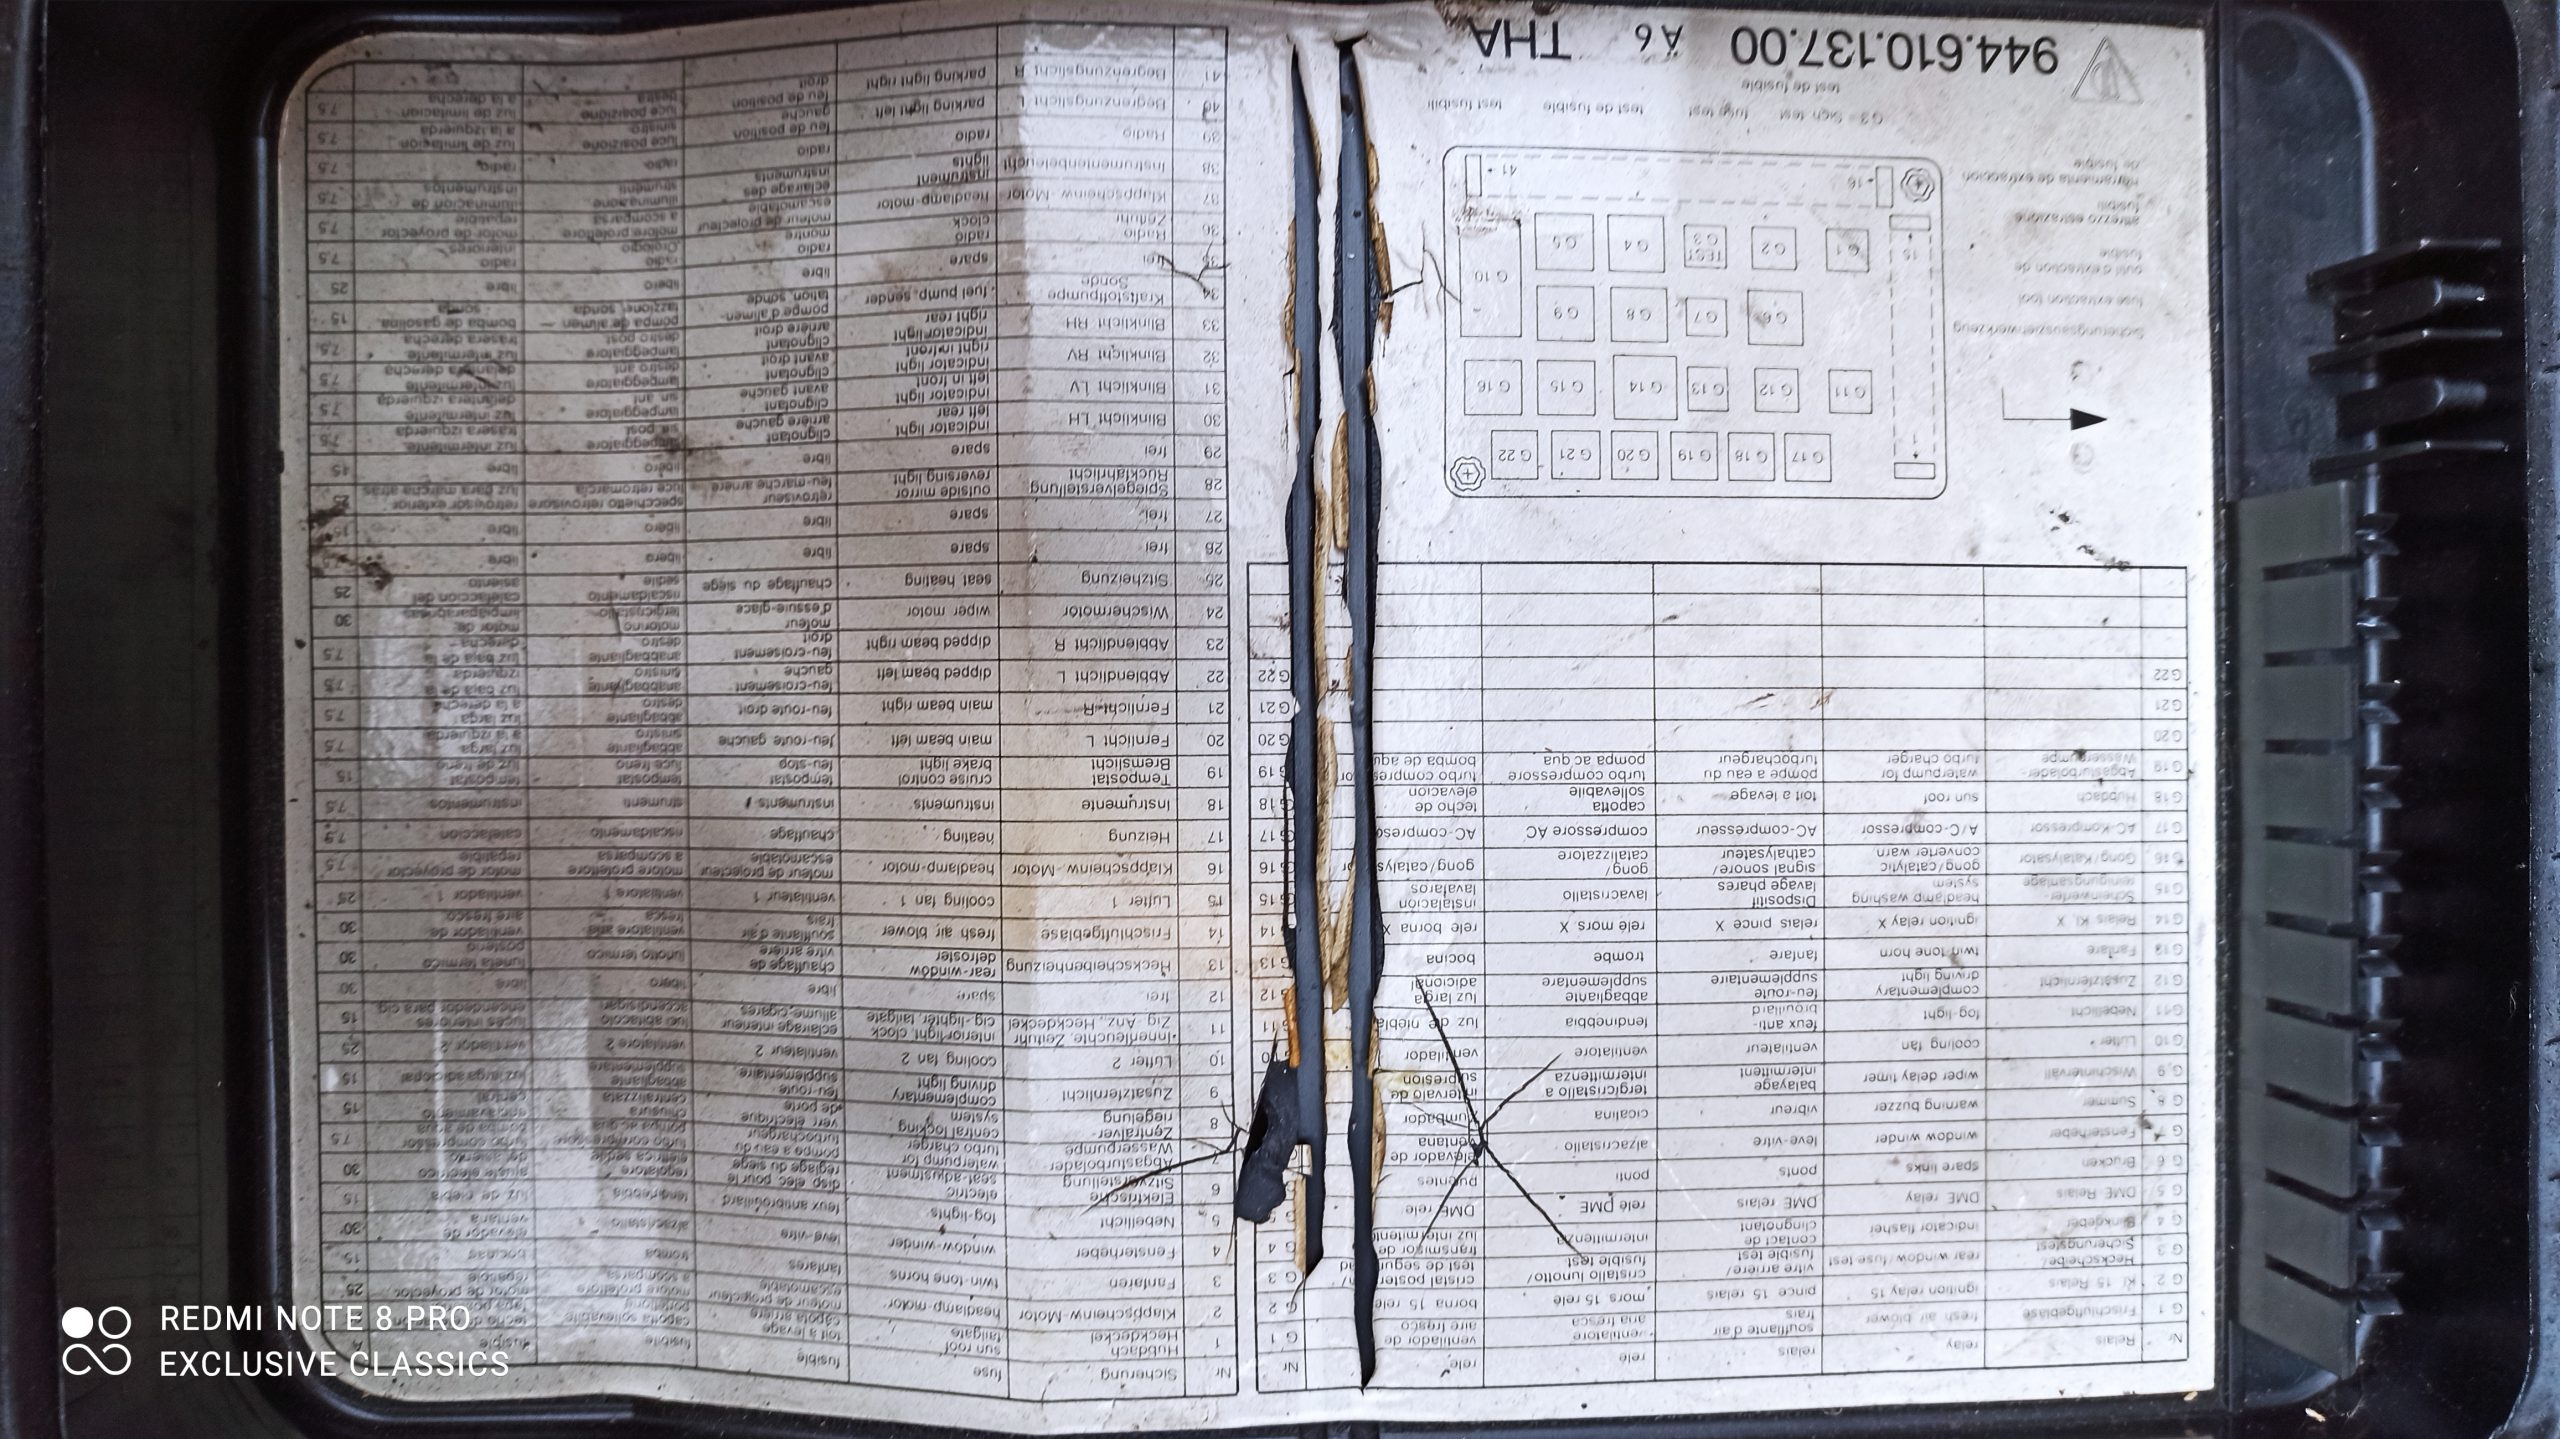 Nr Relais relay relais relè rele Nr
G 1 Frischluftgebläse fresh air blower soufflante d'air frais ventilatore aria fresca ventilador de aire fresco G 1
G 2 Kl 15 Relais ignition relay 15 pince 15 relais mors 15 relè borna 15 rele G 2
G 3 Heckscheibe/Sicherungstest rear window/fuse test vitre arrière/fusible test cristallo lunotto/fusible test cristal poster test de segur G 3
G 4 Blinkgeber indicator flasher contact de clingnotant intermittenza transmisor de luz intermitente G 4
G 5 DME Relais DME relay DME relais relè DME DME rele
G 6 Brücken spare links ponts ponti puentes
G 7 Fensterheber window winder lève-vitre alzacristallo elevador de ventana
G 8 Summer warning buzzer vibreur cicalina zumbador
G 9 Wischintervall wiper delay timer balayage intermitent tergicristallo a intermittenza intervalo de supresion
G 10 Lüfter cooling fan ventilateur ventilatore ventilador
G 11 Nebellicht fog-light feux anti-brouillard fendinebbia luz de niebla
G 12 Zusatzfernlicht complementary driving light feu-route supplementaire abbagliante supplementare luz larga adicional G 12
G 13 Fanfare twin tone horn fanfare trombe bocina G 13
G 14 Relais Kl X ignition relay X relais pince X relè mors X rele borna X G 14
G 15 Scheinwerfer-reinigungsanlage headlamp washing system Dispositif lavage phares lavacristallo instalacion lavafaros G 15
G 16 Gong/Katalysator gong/catalytic converter warn signal sonore/cathalysateur gong/catalizzatore gong/catalys G 16
G 17 AC-Kompressor A/C-compressor AC-compresseur compressore AC AC-compreso G 17
G 18 Hubdach sun roof toit a levage capotta sollevabile techo de elevacion G 18
G 19 Abgasturbolader-Wasserpumpe waterpump for turbo charger pompe a eau du turbochargeur turbo compressore pompa ac qua turbo compres bomba de aqu G 19
G 20 G 20
G 21 G 21
G 22 G 22
G 17 G 18 G 19 G 20 G 21 G 22
G 11 G 12 G 13 G 14 G 15 G 16
G 6 G 7 G 8 G 9
G 1 G 2 TEST G 3 G 4 G 5 G 10
15 16 41
Sicherungsausziehwerkzeug
fuse extraction tool
outil d'extraction de fusible
attrezzo estrazione fusibili
herramienta de extraccion de fusible
G3 = Sich test fuse test test de fusible test fusibili
test de fusible
944.610.137.00 Ä 6 THA
Nr Sicherung fuse fusible fusibile fusible A
1 Hubdach Heckdeckel sun roof tailgate toit a levage capote arrière capotta sollevabile
2 Klappscheinw-Motor headlamp-motor moteur de projecteur escamotable motore proiettore a scomparsa motor de proyector 25
3 Fanfaren twin-tone horns fanfares trombe bocinas 15
4 Fensterheber window-winder lève-vitre alzacristallo elevador de ventana 30
5 Nebellicht fog-lights feux antibrouillard fendinebbia luz de niebla 15
6 Elektrische Sitzverstellung electric seat-adjustment disp elec pour le réglage du siège regolatore elettrica sedile ajuste electrico del asiento 30
7 Abgasturbolader Wasserpumpe waterpump for turbo charger pompe a eau du turbochargeur turbo compressore pompa ac qua turbo compressor bomba de agua 7.5
8 Zentralver-riegelung central locking system verr electrique de porte chiusura centralizzata central 15
9 Zusatzfernlicht complementary driving light feu-route supplementaire abbagliante supplementare luz larga adicional 15
10 Lüfter 2 cooling fan 2 ventilateur 2 ventilatore 2 ventilador 2 25
11 Innenleuchte, Zeituhr Zig. Anz., Heckdeckel interiorlight, clock cig.-lighter, tailgate éclairage interieur allume-cigares accendisigari luces interiores encendedor para cig 15
12 frei spare libre libero libre 30
13 Heckscheibenheizung rear-window defroster chauffage de vitre arrière lunotto termico posterio luneta termico 30
14 Frischluftgebläse fresh air blower soufflante d'air frais ventilatore aria fresca ventilador de aire fresco 30
15 Lüfter 1 cooling fan 1 ventilateur 1 ventilatore 1 ventilador 1 25
16 Klappscheinw-Motor headlamp-motor moteur de projecteur escamotable motore proiettore a scomparsa motor de proyector repatible 7.5
17 Heizung heating chauffage riscaldamento calefaccion 7.5
18 Instrumente instruments instruments strumenti instrumentos 7.5
19 Tempostat Bremslicht cruise control brake light tempostat feu-stop tempostat luce freno tempostat luz de freno 15
20 Fernlicht L main beam left feu-route gauche abbagliante sinistro luz larga a la izquierda 7.5
21 Fernlicht R main beam right feu-route droit abbagliante destro luz larga a la derecha 7.5
22 Abblendlicht L dipped beam left feu-croisement gauche anabbagliante sinistro luz baja de la izquierda 7.5
23 Abblendlicht R dipped beam right feu-croisement droit anabbagliante destro luz baja de la derecha 7.5
24 Wischermotor wiper motor moteur d'essuie-glace motorino tergicristallo motor de limpiaparabrisas 30
25 Sitzheizung seat heating chauffage du siège riscaldamento sedile calefaccion del asiento 25
26 frei spare libre libero libre
27 frei spare libre libero libre 15
28 Spiegelverstellung Rückfahrlicht outside mirror reversing light retroviseur feu-marche arrière specchietto retrovisore luce retromarcia retrovisor exterior luz para marcha atras 25
29 frei spare libre libero libre 15
30 Blinklicht LH indicator light left rear clignotant arrière gauche lampeggiatore sin post luz intermitente trasera izquierda 7.5
31 Blinklicht LV indicator light left in front clignotant avant gauche lampeggiatore sin ant luz intermitente delantera izquierda 7.5
32 Blinklicht RV indicator light right in front clignotant avant droit lampeggiatore destro ant luz intermitente delantera derecha 7.5
33 Blinklicht RH indicator light right rear clignotant arrière droit lampeggiatore destro post luz intermitente trasera derecha 7.5
34 Kraftstoffpumpe Sonde fuel pump, sender pompe d'alimen-tation, sonde pompa de alimen-tazzione, sonda bomba de gasolina, sonda 15
35 frei spare libre libero libre 25
36 Radio Zeituhr radio clock radio montre radio Orologio radio interiores 7.5
37 Klappscheinw-Motor headlamp-motor moteur de projecteur escamotable motore proiettore a scomparsa motor de proyector repatible 7.5
38 Instrumentenbeleucht instrument lights éclairage des instruments illuminazione strumenti iluminacion de instrumentos 7.5
39 Radio radio radio radio radio 7.5
40 Begrenzungslicht L parking light left feu de position gauche luce posizione sinistro luz de limitacion a la izquierda 7.5
41 Begrenzungslicht R parking light right feu de position droit luce posizione destra luz de limitacion a la derecha 7.5
REDMI NOTE 8 PRO
EXCLUSIVE CLASSICS